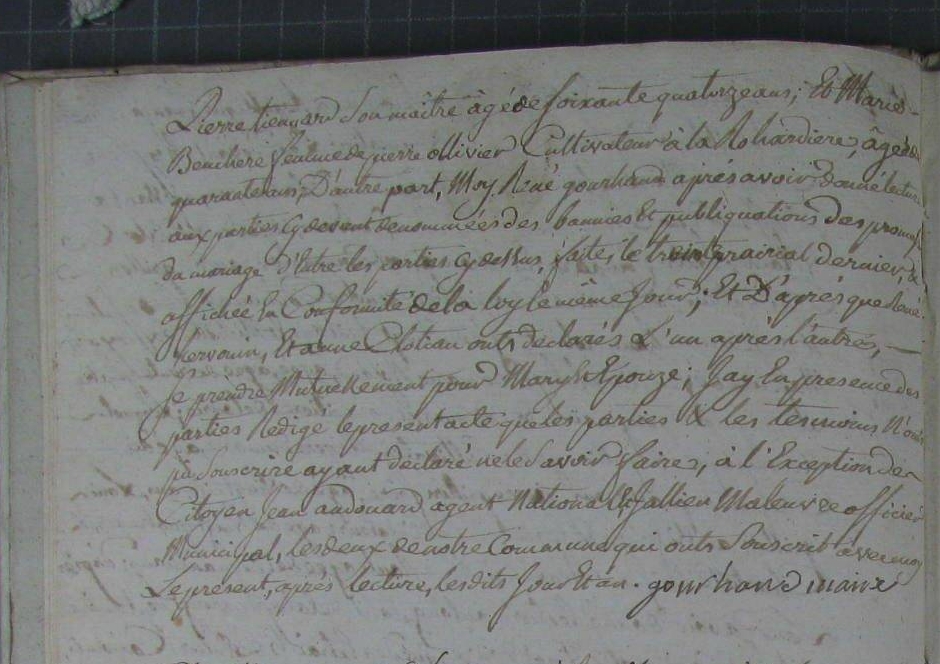 Pierre tiengard Son maitre âgé de soixante quatorze ans; Et Marie-
Beucheré feme de pierre ollivier Cultivateur à la Rohardiere, âgée de
quarante ans, D'autre part, Moy René gourhand aprés avoir donné lecture
aux parties cy devent denommées des bannies Et publiquations des promes
du mariage d'Entre les parties cy dessus, faites le trente prairial dernier, &
affichée En Conformité de la loy le même Jour; Et D'aprés que René
hervouin, Et anne Chotian onts declarés L'un aprés l'autre,
Se prendre Mutuellement pour Mary & Epouze; Jay En presence des
parties Redigé le present acte que les parties & les temoins N'onts
pu Souscrire ayant déclaré ne le Savoir faire, à l'Exception de
Citoyen Jean audouard agent National & Jullien Maleuvre officier
Municipal, les deux de notre Commune qui onts Souscrit avec moy
Le present, aprés lecture, lesdits Jour Et an. gourhand maire